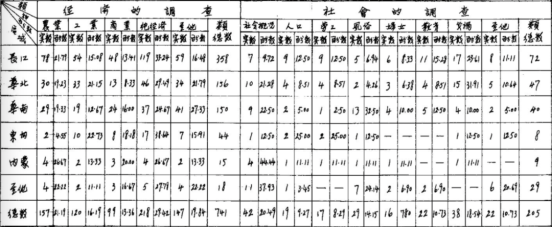 經濟的調查 社會的調查
農業 工業 商業 純經濟 其他 總值 社會概況 人口 勞工 風俗 博士 教育 其他
實數 百分數 實數 百分數 實數 百分數 實數 百分數 實數 百分數 實數 百分數 實數 百分數 實數 百分數 實數 百分數 實數 百分數 實數 百分數 實數 百分數 實數 百分數
長江 78 21.79 54 15.08 48 13.41 119 33.24 59 16.48 358 7 9.72 9 12.50 9 12.50 5 6.94 6 8.33 11 15.28 17 23.61 8 11.11 72
華北 30 19.23 33 21.15 13 8.33 46 29.49 34 21.79 156 10 21.28 4 8.51 4 8.51 2 4.26 3 6.38 4 8.51 15 31.91 5 10.64 47
華南 29 19.33 19 12.67 24 16.00 37 24.67 41 27.33 150 9 22.50 2 5.00 1 2.50 13 32.50 4 10.00 5 12.50 4 10.00 2 5.00 40
東胡 2 4.55 10 22.73 8 18.18 17 38.64 7 15.91 44 1 12.50 2 25.00 2 25.00 1 12.50 — — — — 1 12.50 1 12.50 8
內蒙 4 26.67 2 13.33 3 20.00 4 26.67 2 13.33 15 4 44.44 1 11.11 1 11.11 1 11.11 1 11.11 — — 1 11.11 — — 9
其他 4 22.22 2 11.11 3 16.67 5 27.78 4 22.22 18 11 37.93 1 3.45 — — 7 24.14 2 6.90 2 6.90 — — 6 20.69 29
總數 157 21.19 120 16.19 99 13.36 218 29.42 147 19.84 741 42 20.49 19 9.27 17 8.29 29 14.15 16 7.80 22 10.73 38 18.54 22 10.73 205